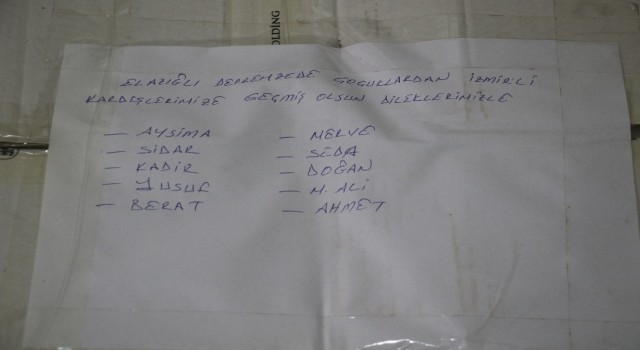 OLDİNG
ELAZIĞLI DEPREMZEDE ÇOCUKLARDAN İZMİRLİ
KARDEŞLERİMİZE GEÇMİŞ OLSUN DİLEKLERİMİZLE
— AYSİMA
— SİDAR
— KADİR
— YUSUF
— BERAT
— MERVE
— SEDA
— DOĞAN
— M. ALİ
— AHMET